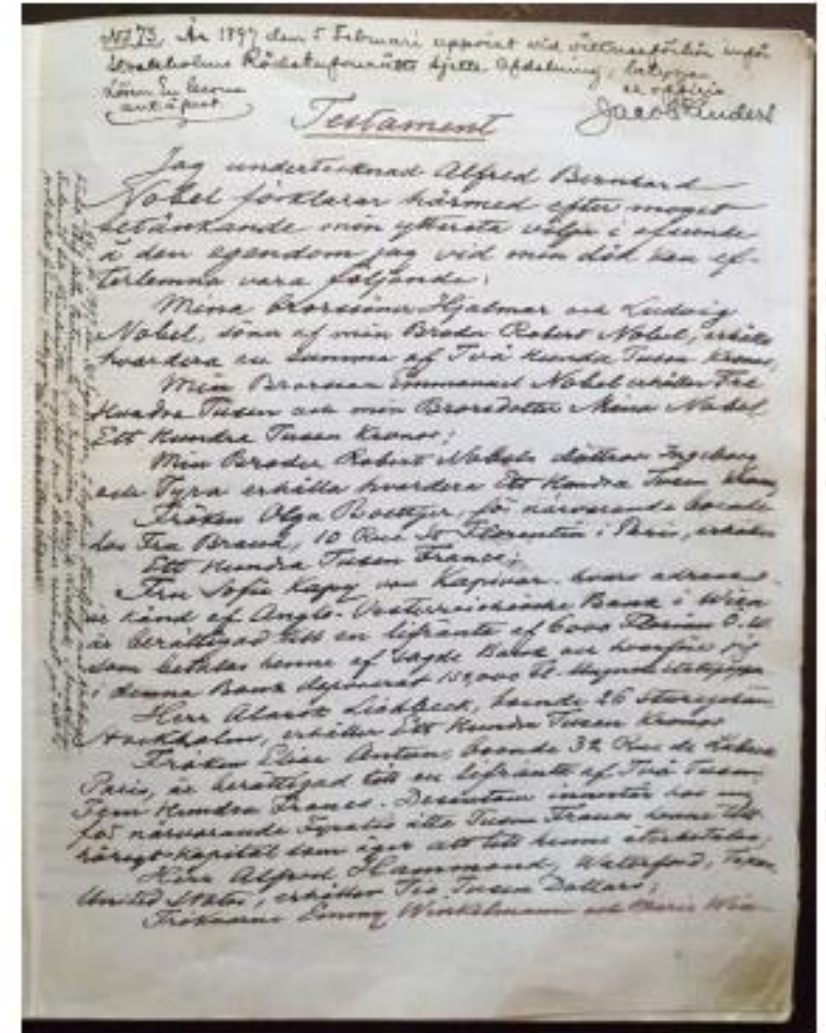 No 73. År 1897 den 5 Februari uppvist vid vittnesförhör inför
Stockholms Rådstufvurätts sjette Afdelning; betygar
Lösen En krona
ex officio
Jacob
Testament
Jag undertecknad Alfred Bernhard
Nobel förklarar härmed efter moget
betänkande min yttersta vilja i afseende
å den egendom jag vid min död kan ef-
terlemna vara följande:
Mina Brorsöner Hjalmar och Ludvig
Nobel, söner af min Broder Robert Nobel, erhålla
hvardera en summa af Två Hundra Tusen Kronor,
Min Brorson Emmanuel Nobel erhåller Tre
Hundra Tusen och min Brorsdotter Mina Nobel
Ett Hundra Tusen Kronor;
Min Broder Robert Nobels döttrar Ingeborg
och Tyra erhålla hvardera Ett Hundra Tusen Kronor
Fröken Olga Boettger, för närvarande boende
hos Fru Brand, 10 Rue St Florentin i Paris, erhåller
Ett Hundra Tusen Francs;
Fru Sofie Kapy von Kapivar, hvars adress
är känd af Anglo-Oesterreichische Bank i Wien
är berättigad till en lifränta af 6000 Florins Ö.W.
som betalas henne af sagde Bank och hvarför jag
i denna Bank deponerat 150,000 Fl. i Ungerska
Herr Alarik Liedbeck, boende 26 Sturegatan,
Stockholm, erhåller Ett Hundra Tusen Kronor
Fröken Elise Antun, boende 32 Rue de Lubeck
Paris, är berättigad till en lifränta af Två Tusen
Fem Hundra Francs. Dessutom innestår hos mig
för närvarande Fyratio åtta Tusen Francs henne till-
hörigt kapital som äger att till henne återbetalas;
Herr Alfred Hammond, Waterford, Texas,
United States, erhåller Tio Tusen Dollars;
Fröknarna Emmy Winkelmann och Marie Win-